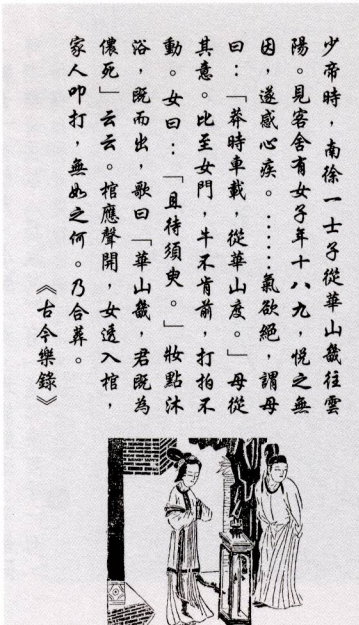 少帝時，南徐一士子從華山畿往雲
陽。見客舍有女子年十八九，悅之無
因，遂感心疾。……氣欲絕，謂母
曰：「葬時車載，從華山度。」母從
其意。比至女門，牛不肯前，打拍不
動。女曰：「且待須臾。」妝點沐
浴，既而出，歌曰「華山畿，君既為
儂死」云云。棺應聲開，女透入棺，
家人叩打，無如之何。乃合葬。
《古今樂錄》